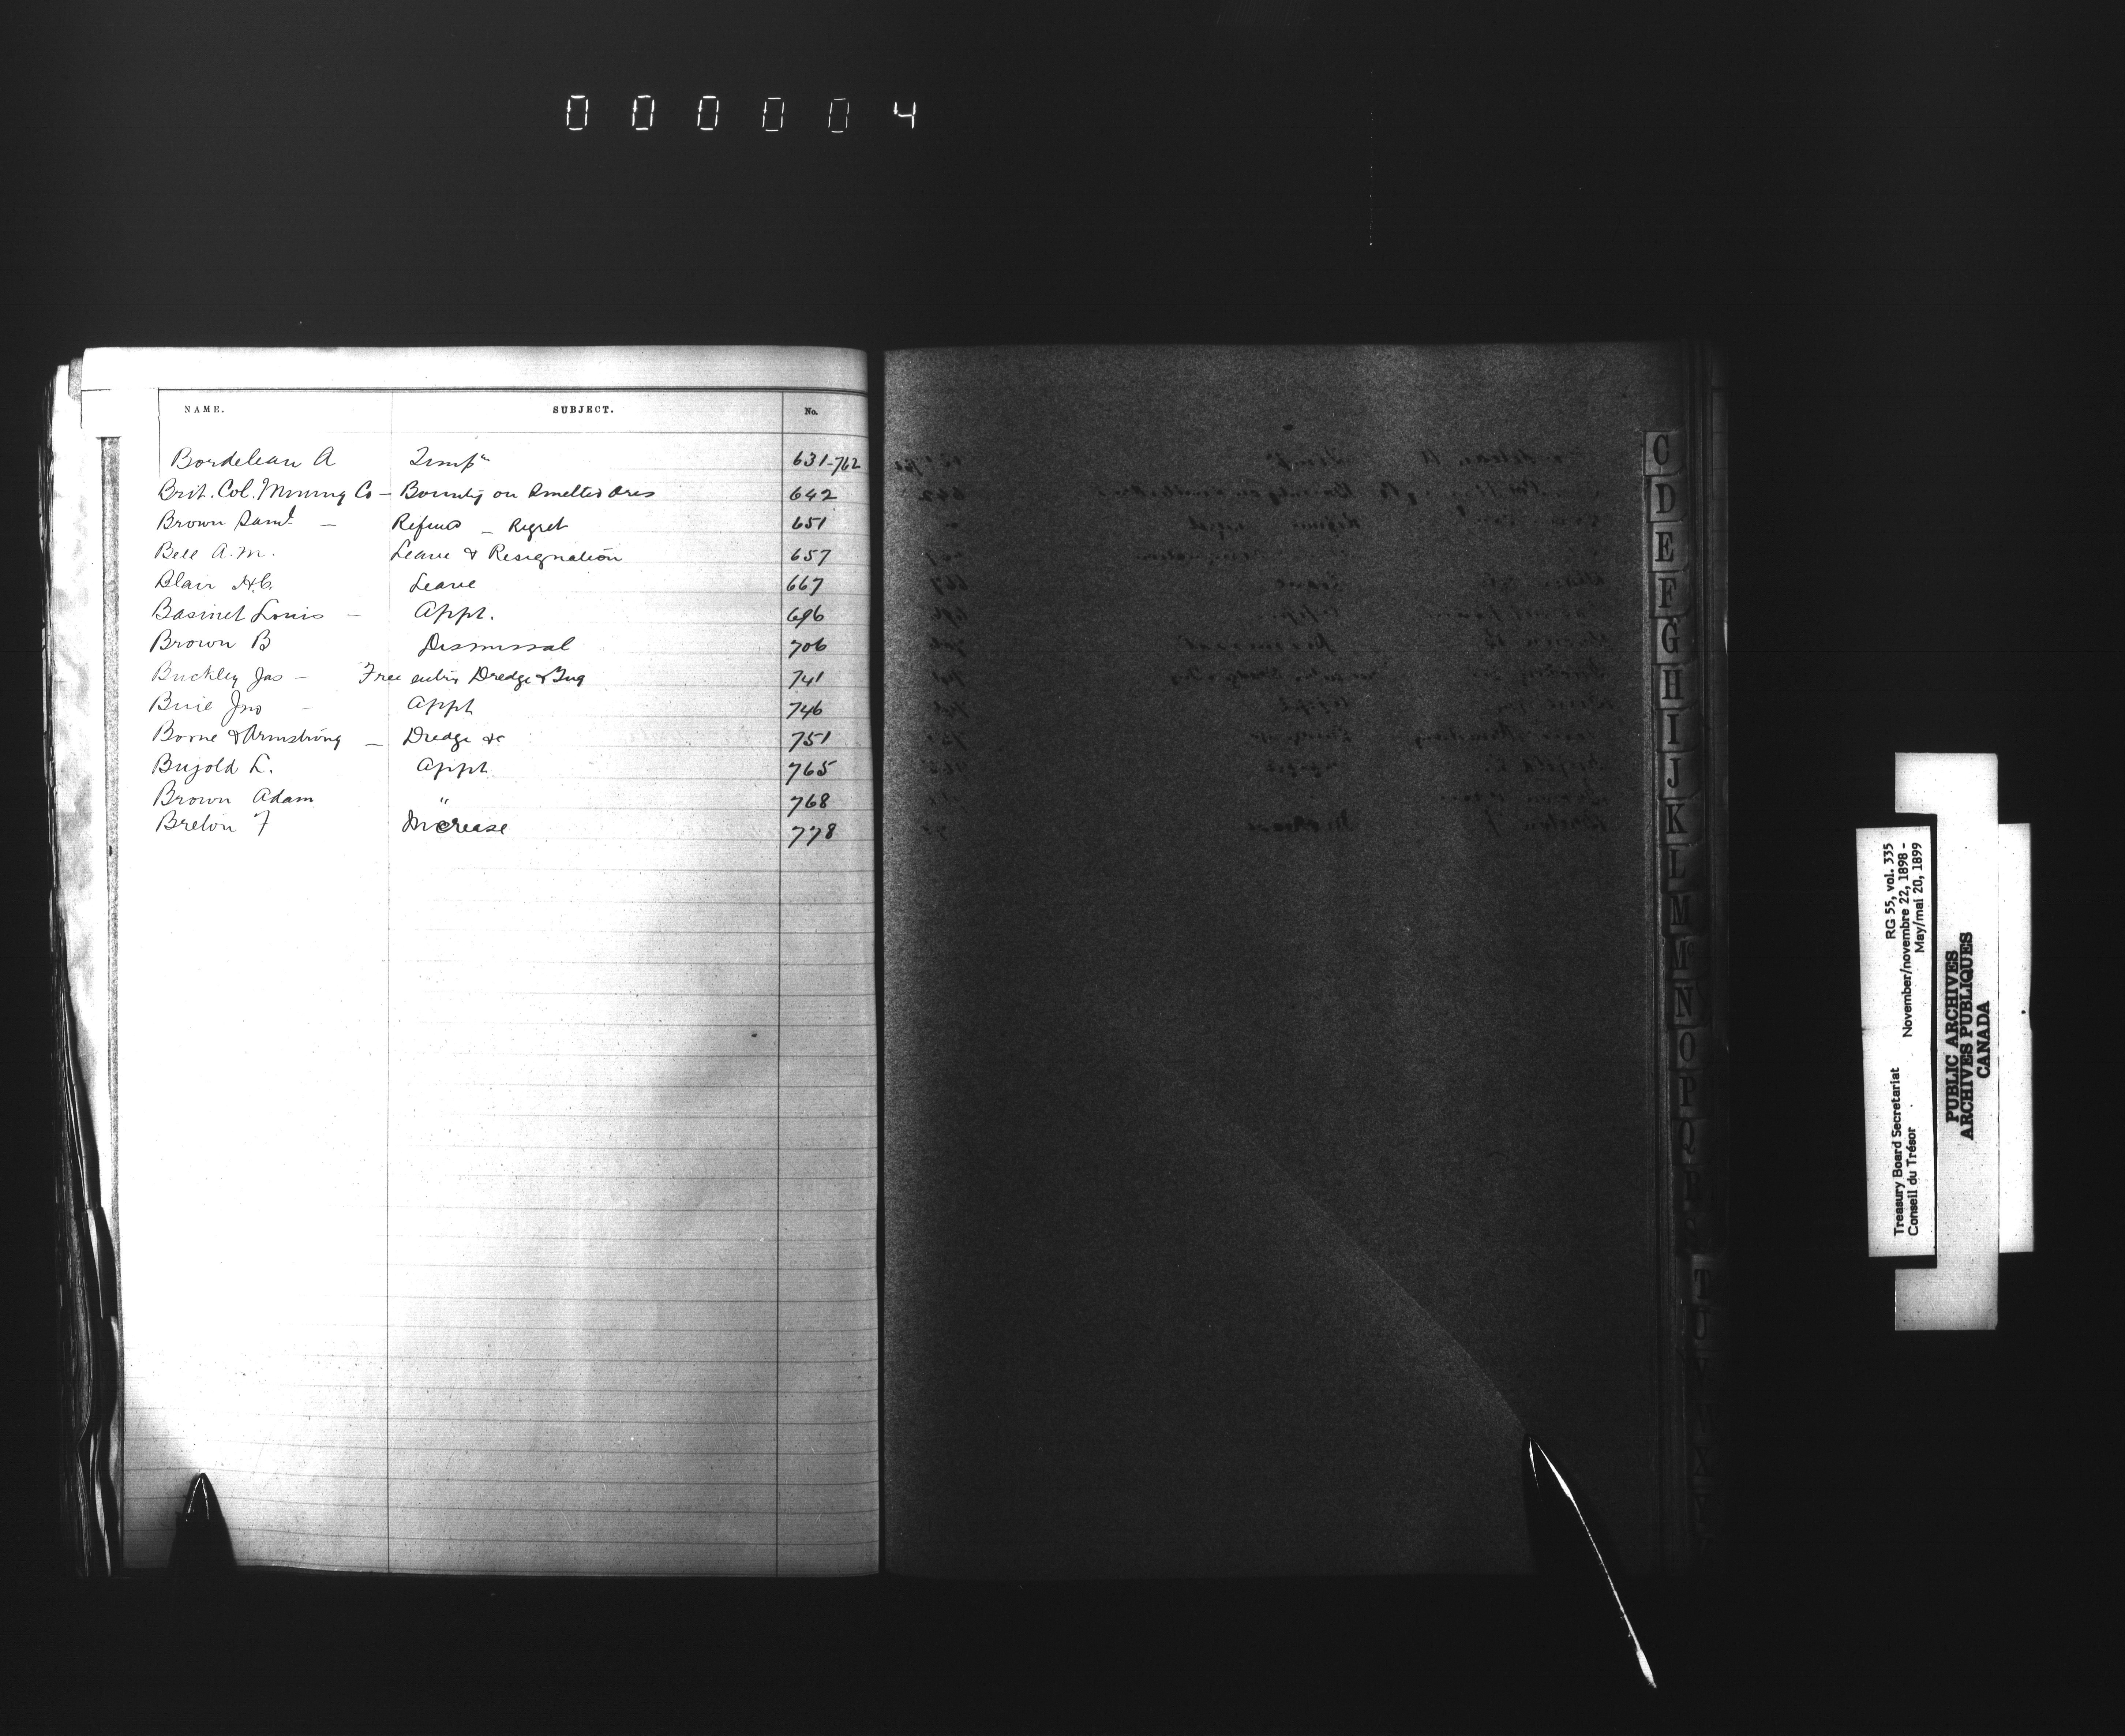 000004
NAME. SUBJECT. No.
Bordeleau A Temp' 631-762
Brit. Col. Mining Co - Bounty on Smelted Ores 642
Brown Saml - Refund - Regret 651
Bell A.M. Leave & Resignation 657
Blair H.C. Leave 667
Basinet Louis - Appt. 696
Brown B Dismissal 706
Buckley Jas - Free entry Dredge & Tug 741
Buie Jno - Appt 746
Boone & Armstrong - Dredge &c 751
Bujold L. Appt 765
Brown Adam " 768
Breton F Increase 778
C
D
E
F
G
H
I
J
K
L
M
Mc
N
O
P
Q
R
T
U
V
W
X
Treasury Board Secretariat RG 55, vol. 335
Conseil du Trésor November/novembre 22, 1898 -
May/mai 20, 1899
PUBLIC ARCHIVES
ARCHIVES PUBLIQUES
CANADA